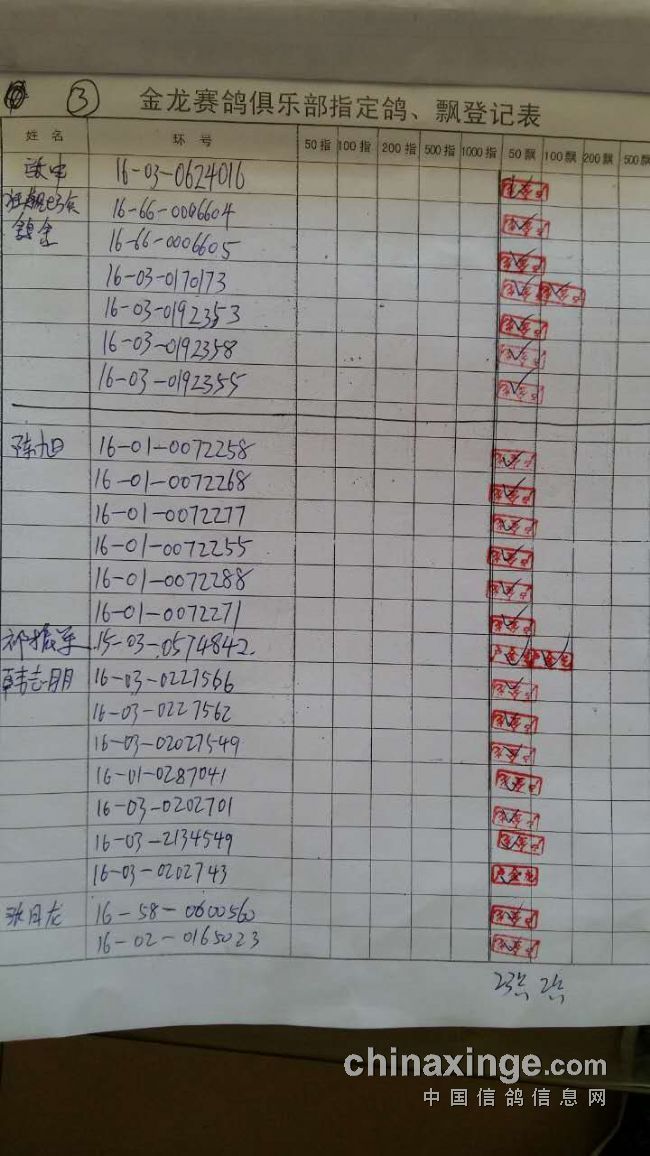 ③ 金龙赛鸽俱乐部指定鸽、飘登记表
姓 名 环 号 50指 100指 200指 500指 1000指 50飘 100飘 200飘 500飘
16-03-0624016
16-66-0006604
16-66-0006605
16-03-0170173
16-03-0192353
16-03-0192358
16-03-0192355
陈旭 16-01-0072258
16-01-0072268
16-01-0072277
16-01-0072255
16-01-0072288
16-01-0072271
祁振军 15-03-0574842
韩志明 16-03-0227566
16-03-0227562
16-03-02027549
16-01-0287041
16-03-0202701
16-03-2134549
16-03-0202743
张月龙 16-58-0600560
16-02-0165023
23 2
chinaxinge.com
中国信鸽信息网